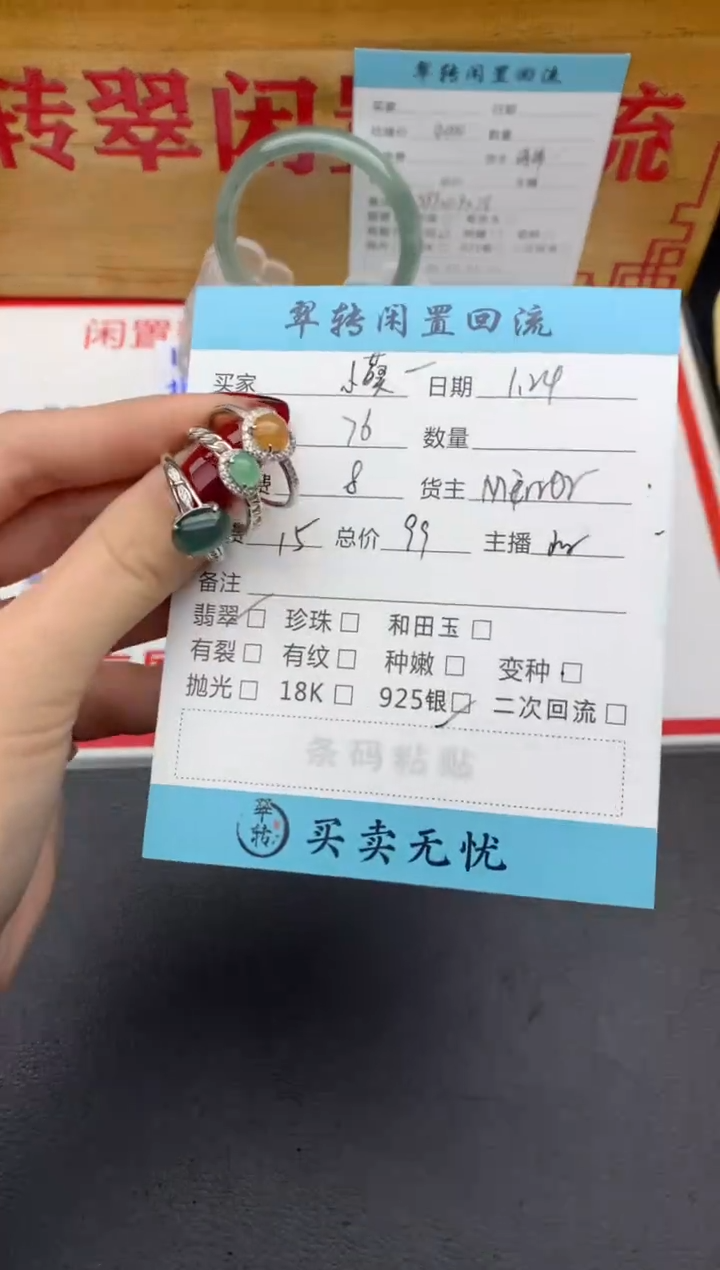 转翠闲置
流
翠转闲置回流
买家 日期
数量
闲置
翠转闲置回流
买家 小葵一 日期 1.24
76 数量
费 8 货主 Mirror
费 15 总价 99 主播
备注
翡翠 珍珠 和田玉
有裂 有纹 种嫩 变种
抛光 18K 925银 二次回流
条码粘贴
翠转 买卖无忧